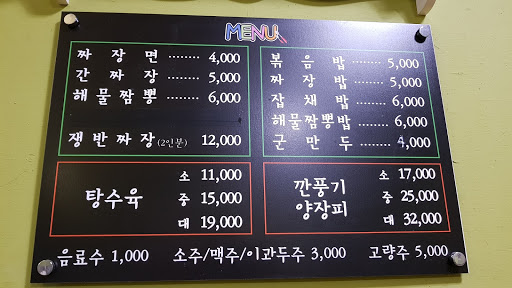 MENU
짜장면 ........ 4,000
간짜장 ........ 5,000
해물짬뽕 ....... 6,000
쟁반짜장(2인분) 12,000
볶음밥 ....... 5,000
짜장밥 ....... 5,000
잡채밥 ....... 6,000
해물짬뽕밥 ..... 6,000
군만두 ....... 4,000
탕수육
소 11,000
중 15,000
대 19,000
깐풍기
양장피
소 17,000
중 25,000
대 32,000
음료수 1,000 소주/맥주/이과두주 3,000 고량주 5,000